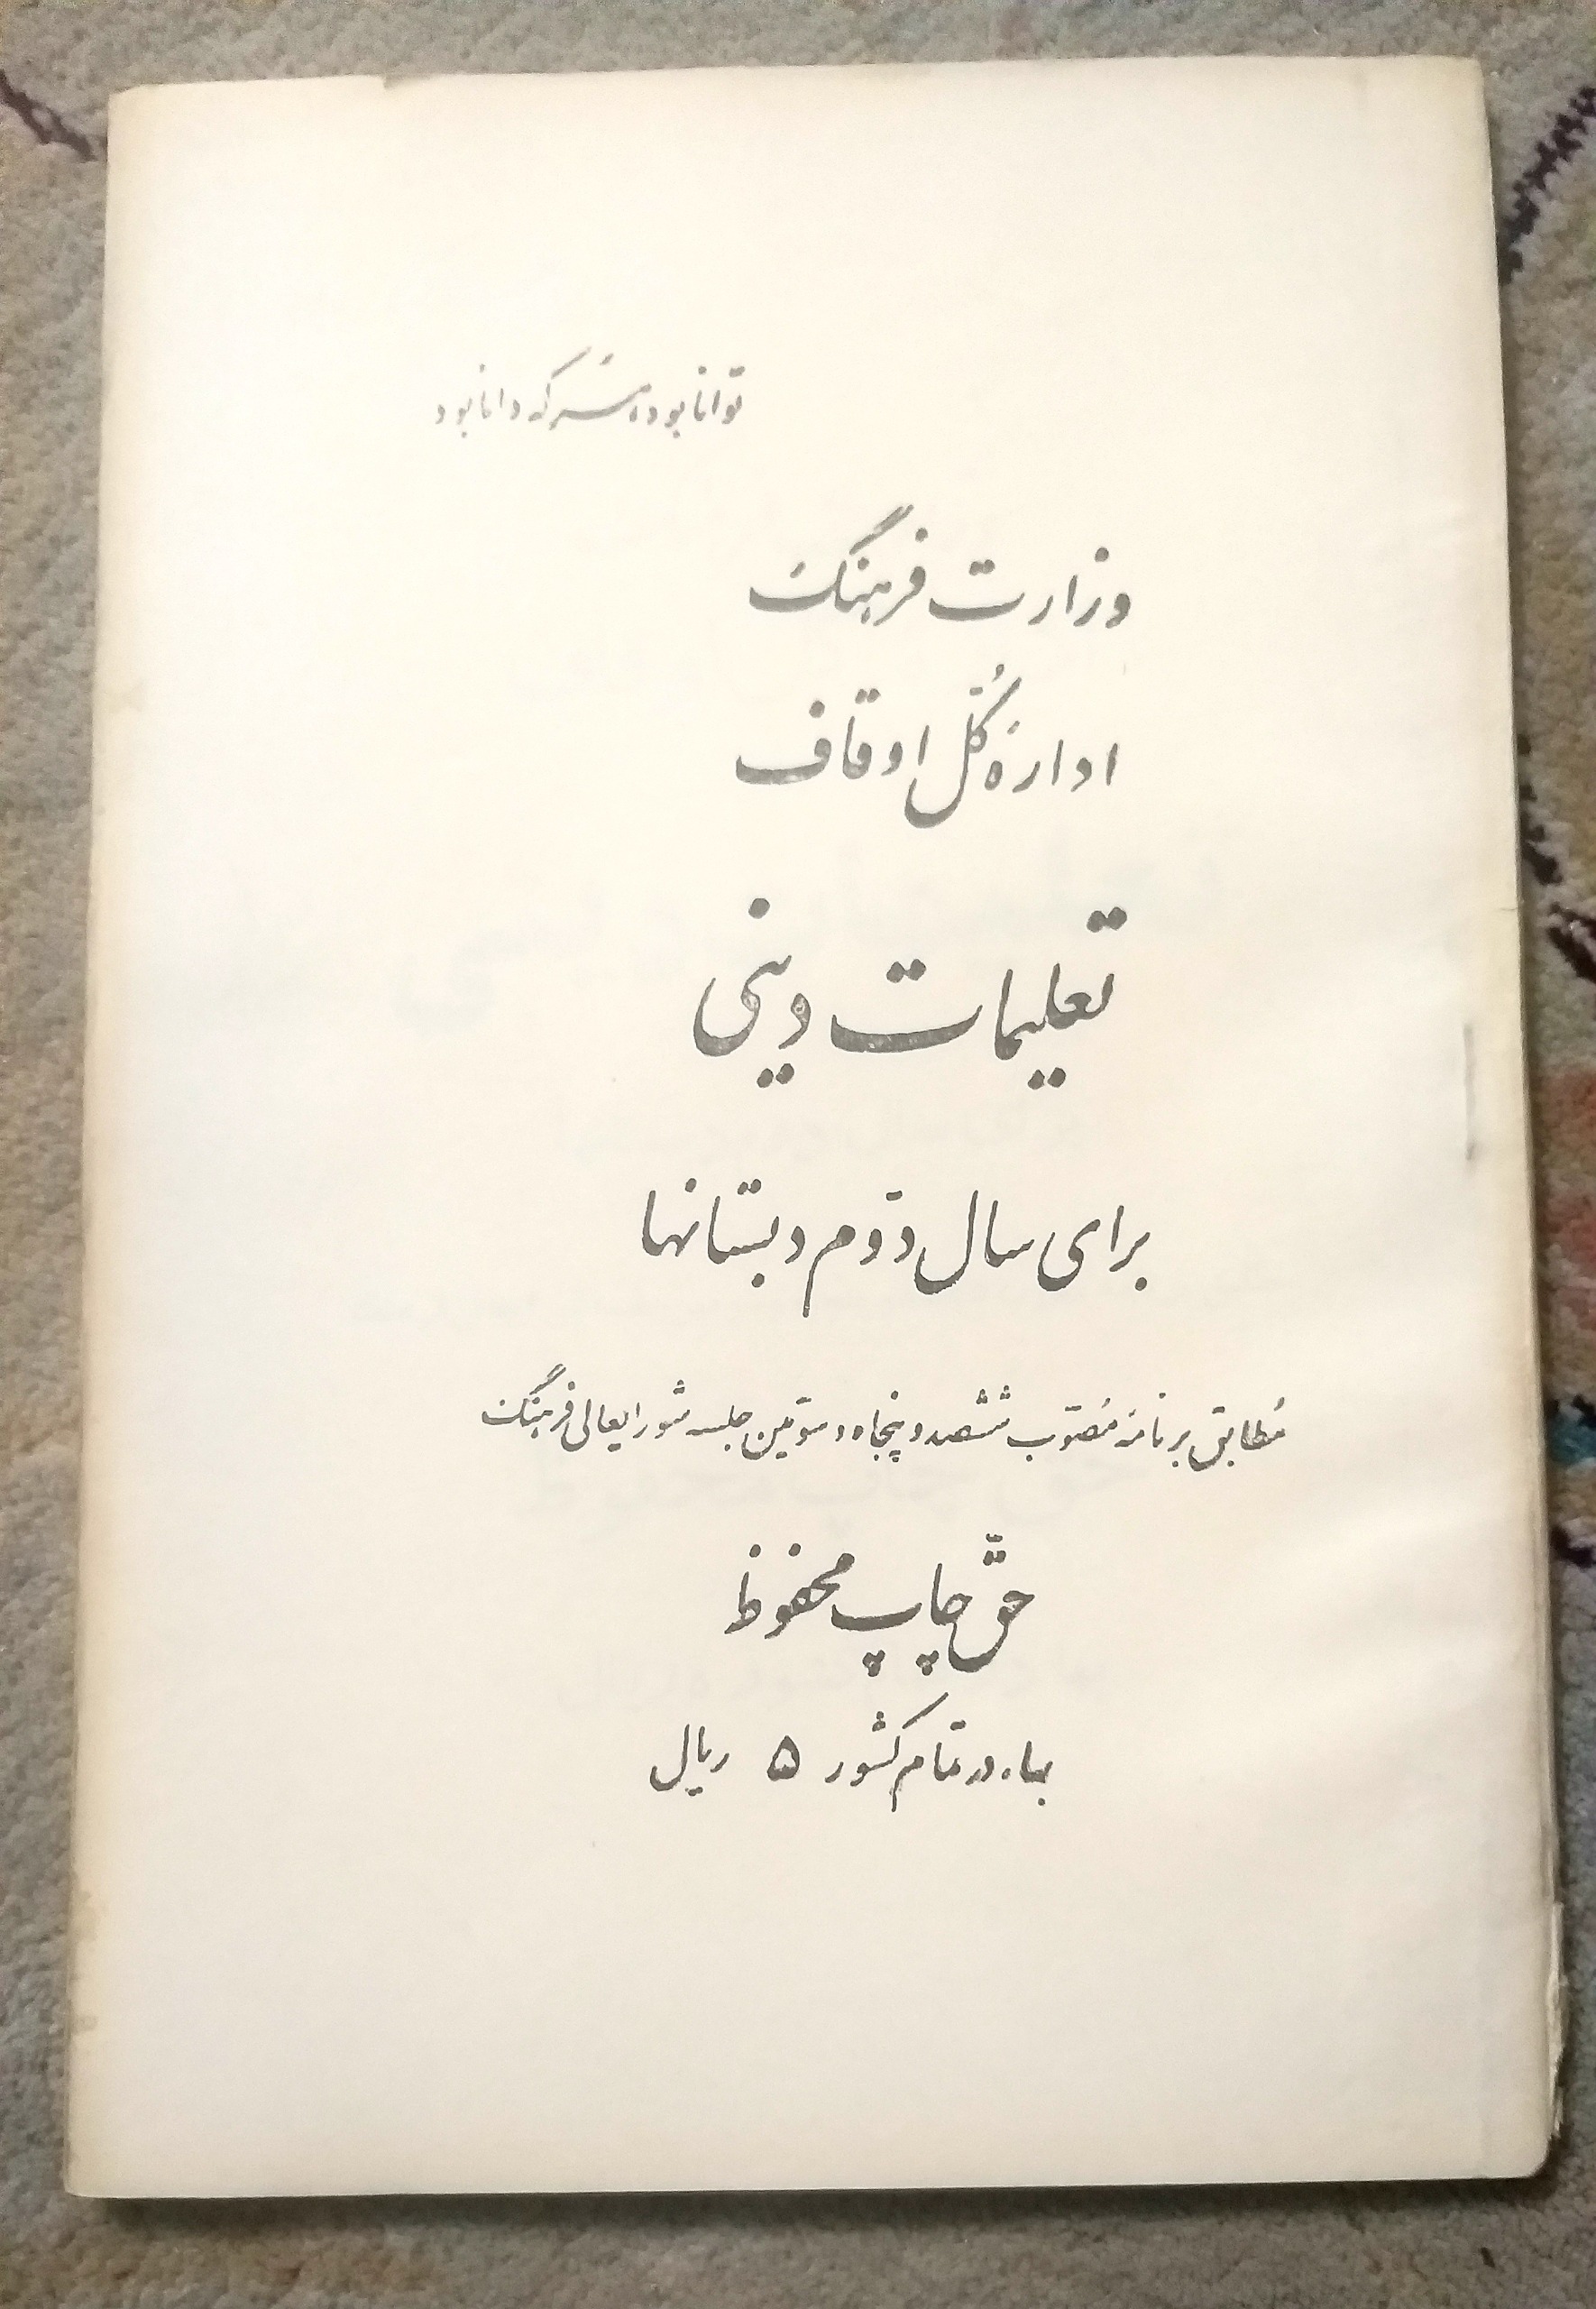 توانا بود هر که دانا بود
وزارت فرهنگ
ادارهٔ کُلّ اوقاف
تعلیمات دینی
برای سال دوّم دبستانها
مُطابق برنامهٔ مُصوّب ششصد و پنجاه و سوّمین جلسه شورایعالی فرهنگ
حقّ چاپ محفوظ
بهاء در تمام کشور ۵ ریال